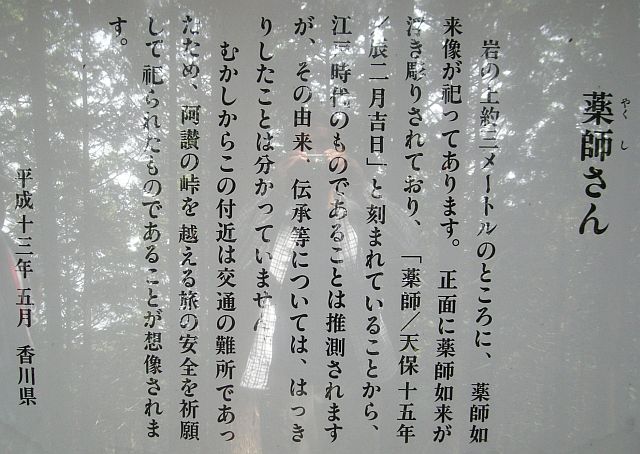 薬師さん
やくし
岩の上約三メートルのところに、薬師如
来像が祀ってあります。正面に薬師如来が
浮き彫りされており、「薬師／天保十五年
／辰二月吉日」と刻まれていることから、
江戸時代のものであることは推測されます
が、その由来、伝承等については、はっき
りしたことは分かっていません
むかしからこの付近は交通の難所であっ
たため、阿讃の峠を越える旅の安全を祈願
して祀られたものであることが想像されま
す。
平成十三年五月 香川県